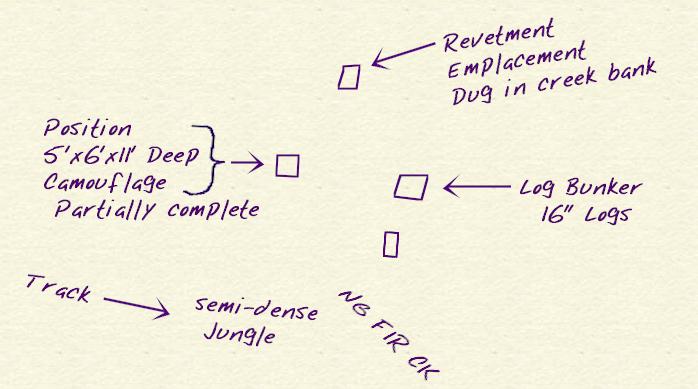 Revetment
Emplacement
Dug in creek bank
Position
5'x6'x11' Deep
Camouflage
Partially complete
Log Bunker
16" Logs
Track
semi-dense
Jungle
NG FIR CK